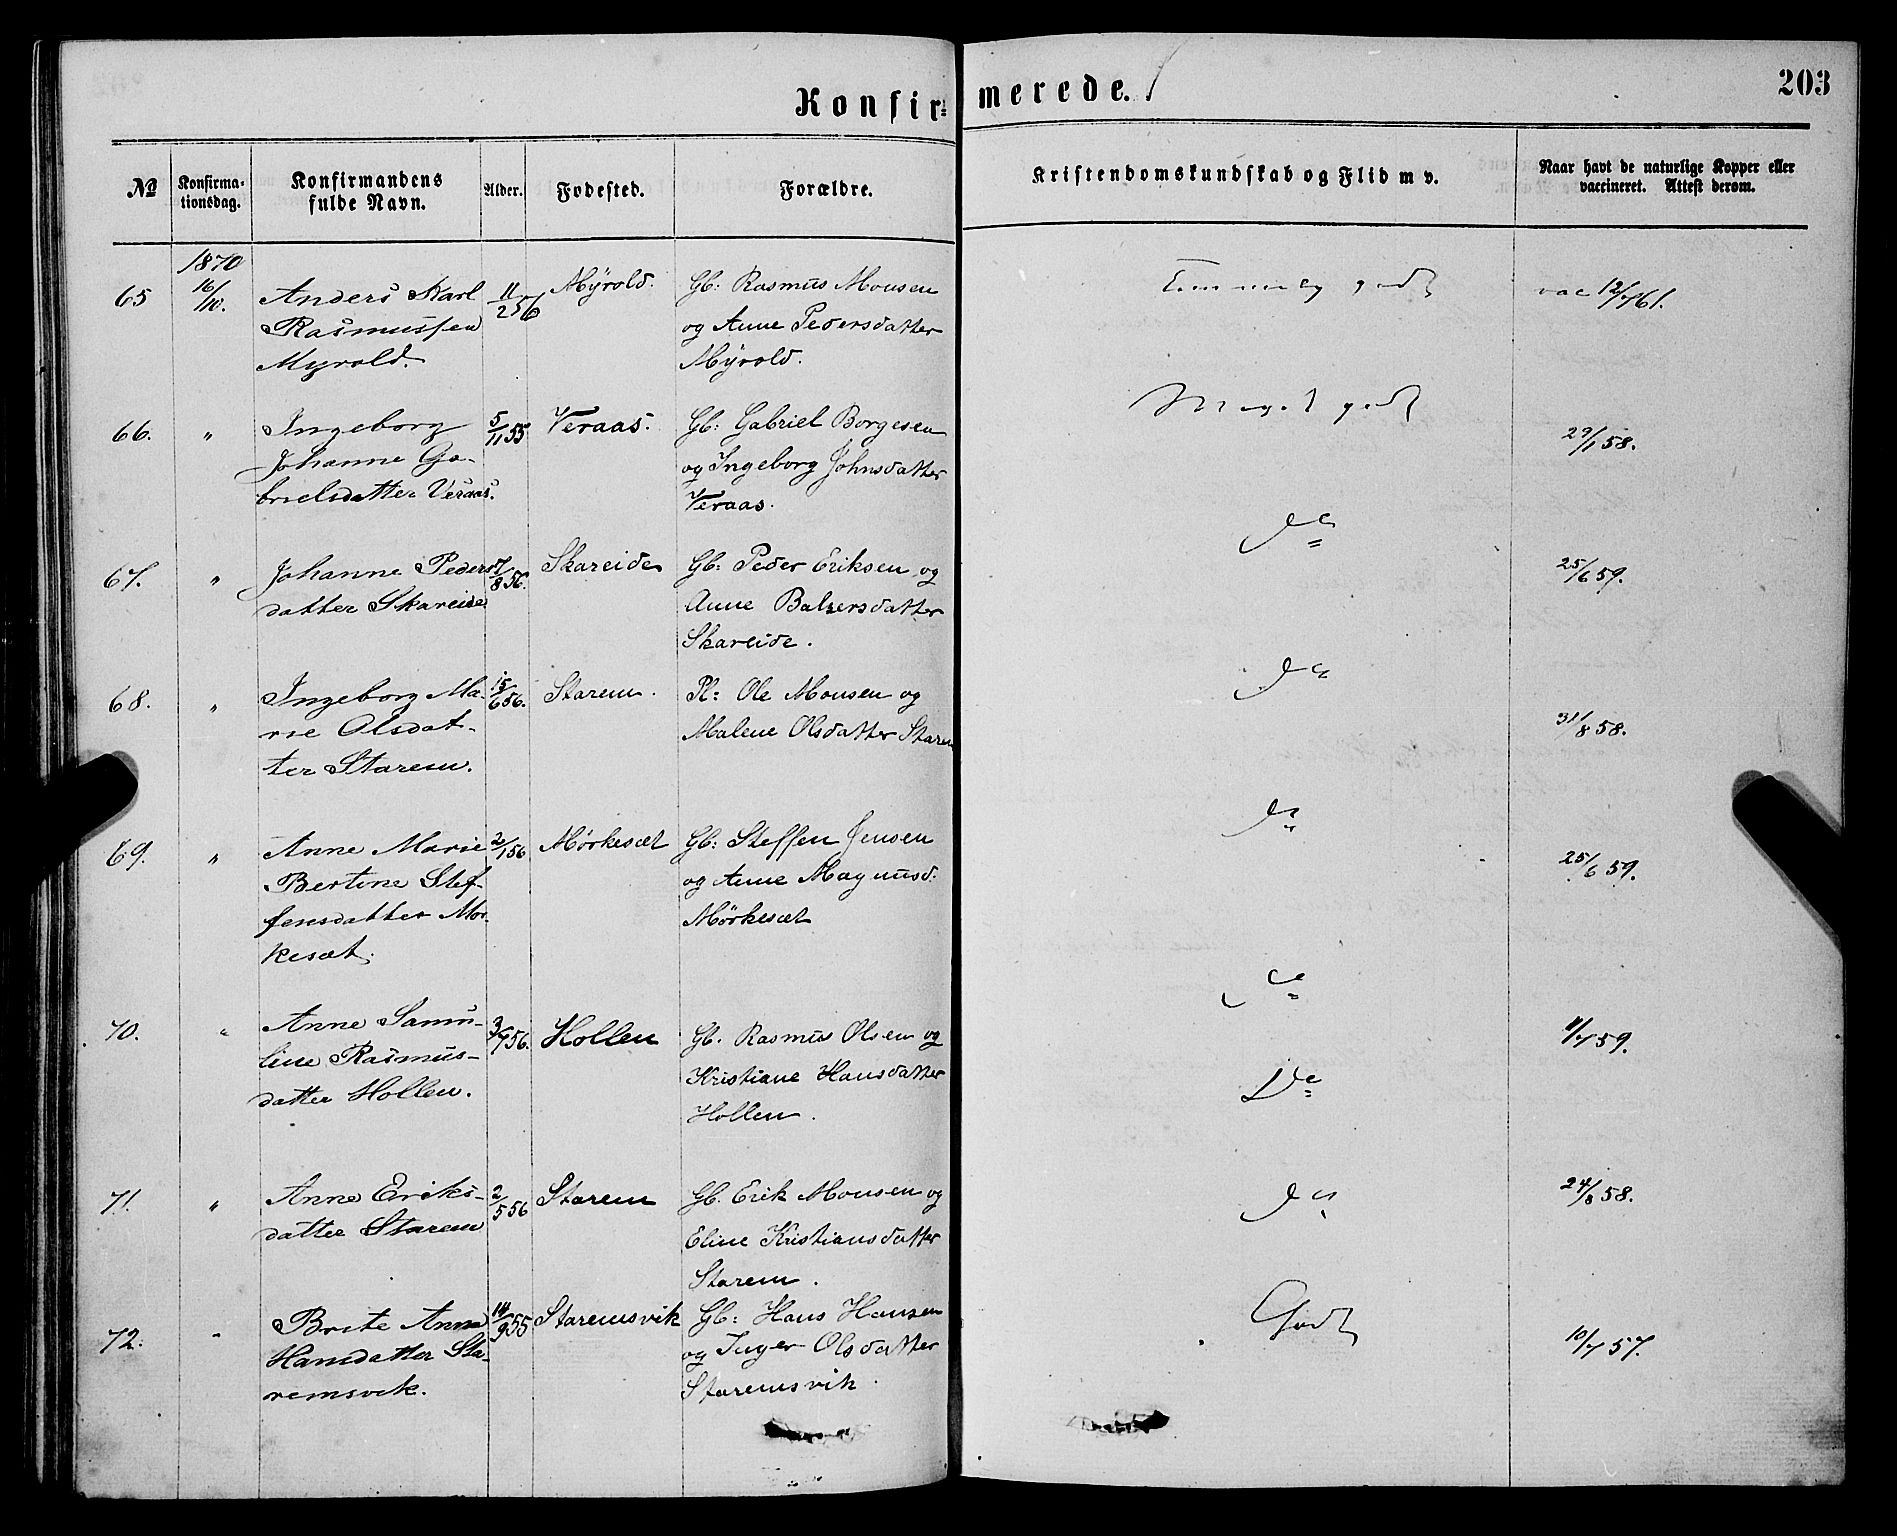 Konfir=
merede.
203
No
Konfirma=
tionsdag.
Konfirmandens
fulde Navn.
Alder.
Fødested.
Forældre.
Kristendomskundskab og Flid m v.
Naar havt de naturlige Kopper eller
vaccineret. Attest derom.
1870
65 16/10. Anders Karl
Rasmussen
Myrold.
11/2 56 Myrold. Gb: Rasmus Monsen
og Anne Pedersdatter
Myrold.
Temmelig godt
vac 12/7 61.
66. " Ingeborg
Johanne Ga-
brielsdatter Veraas.
5/11 55 Veraas. Gb: Gabriel Borgesen
og Ingeborg Johnsdatter
Veraas.
Meget godt
29/1 58.
67. " Johanne Peders
datter Skareide
7/8 56. Skareide Gb: Peder Eriksen og
Anne Balzersdatter
Skareide.
Do
25/6 59.
68. " Ingeborg Ma-
rie Olsdat-
ter Starem.
15/6 56. Starem. Pl: Ole Monsen og
Malene Olsdatter Starem
Do
31/8 58.
69. " Anne Marie
Bertine Stef-
fensdatter Mör-
kesæt.
2/1 56 Mörkesæt Gb: Steffen Jensen
og Anne Magnusd.
Mörkesæt
Do
25/6 59.
70. " Anne Samu-
line Rasmus-
datter Hollen.
3/7 56. Hollen Gb. Rasmus Olsen og
Kristiane Hansdatter
Hollen.
Do
/7 59.
Do
71. " Anne Eriks-
datter Starem
2/5 56 Starem Gb. Erik Monsen og
Eline Kristiansdatter
Starem.
Do
24/8 58.
72. " Brite Anne
Hansdatter Sta-
remsvik.
14/9 55 Staremsvik Gb: Hans Hansen
og Inger Olsdatter
Staremsvik.
Godt
10/7 57.